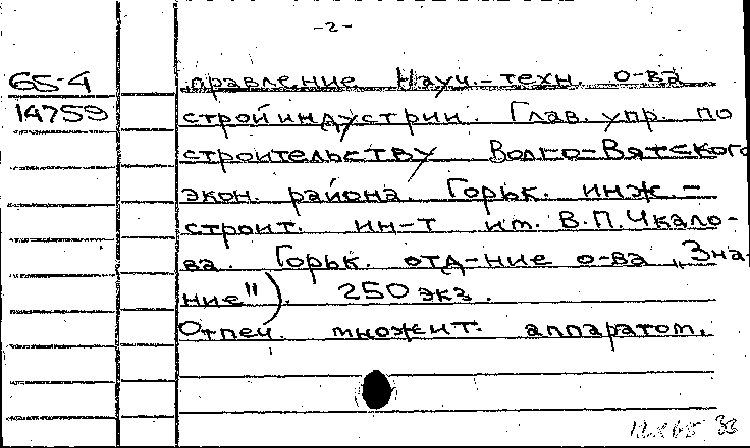 -2-
65-4 правление Науч.-техн. о-ва
14759 стройиндустрии. Глав. упр. по
строительству Волго-Вятского
экон. района. Горьк. инж.-
строит. ин-т им. В.П.Чкало-
ва. Горьк. отд-ние о-ва „Зна-
ние"). 250 экз.
Отпеч. множит. аппаратом.